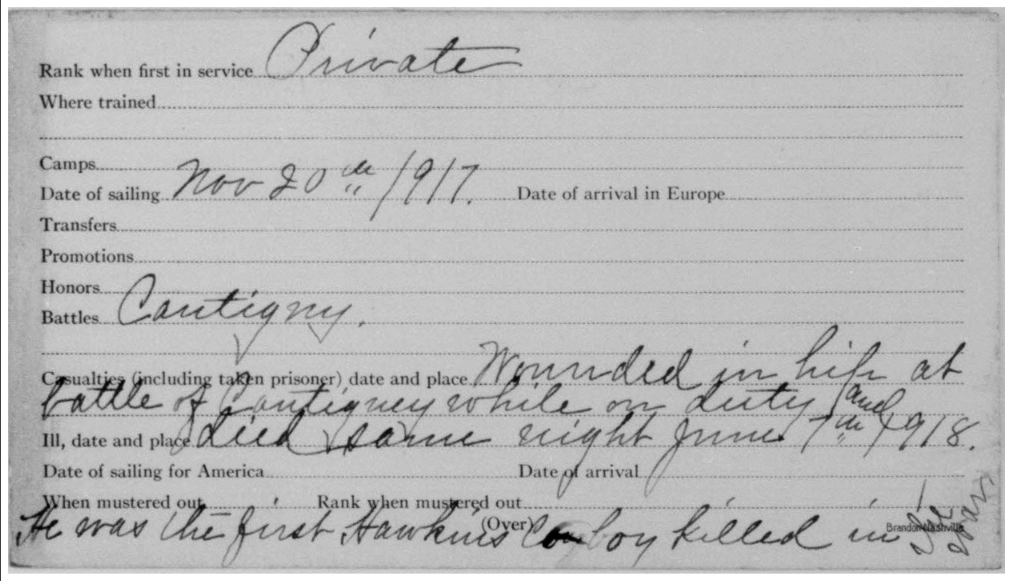 Rank when first in service Private
Where trained
Camps
Date of sailing Nov 20th 1917. Date of arrival in Europe
Transfers
Promotions
Honors
Battles Cantigny.
Casualties (including taken prisoner) date and place Wounded in hip at
battle of Cantigney while on duty and
Ill, date and place died same night June 7th 1918.
Date of sailing for America Date of arrival
When mustered out Rank when mustered out
(Over)
He was the first Hawkins Co boy killed in the war
Brandon Nashville